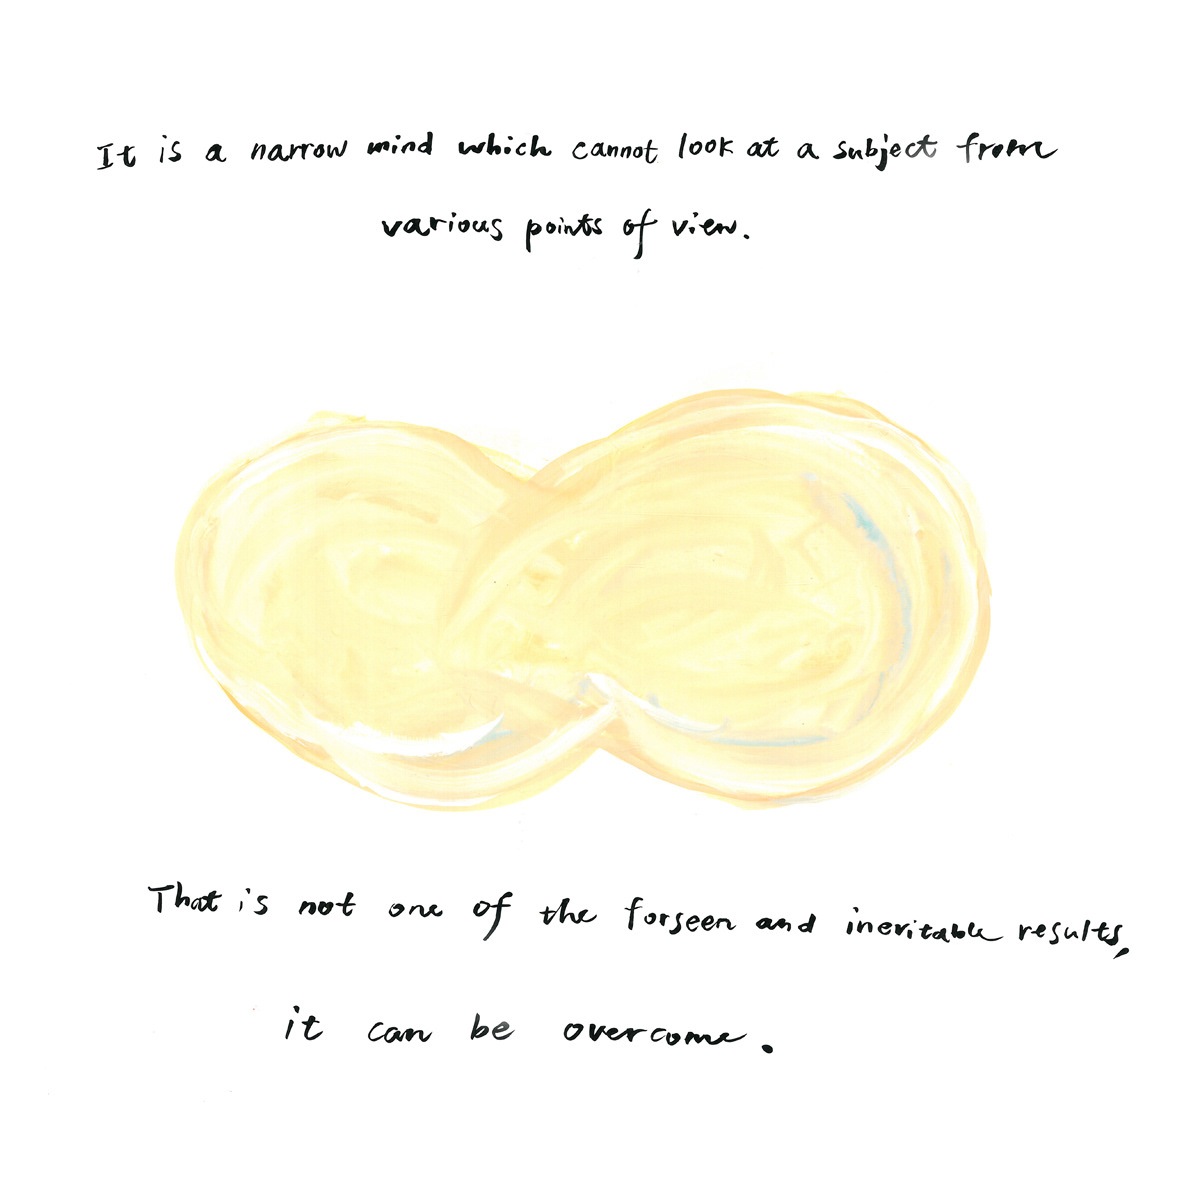 It is a narrow mind which cannot look at a subject from
various points of view.
That is not one of the forseen and inevitable results,
it can be overcome.